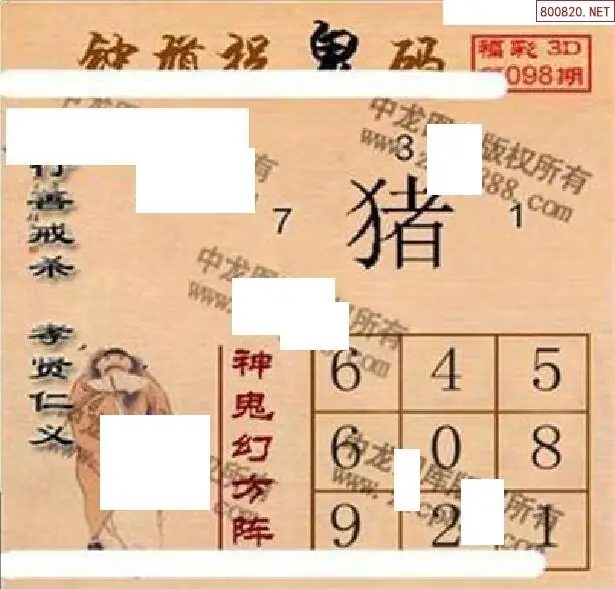 800820.NET
钟馗捉鬼码
福彩3D
098期
中龙图 版权所有
3
7
猪
1
行善戒杀 孝贤仁义
神鬼幻方阵
6 4 5
6 0 8
9 2 1